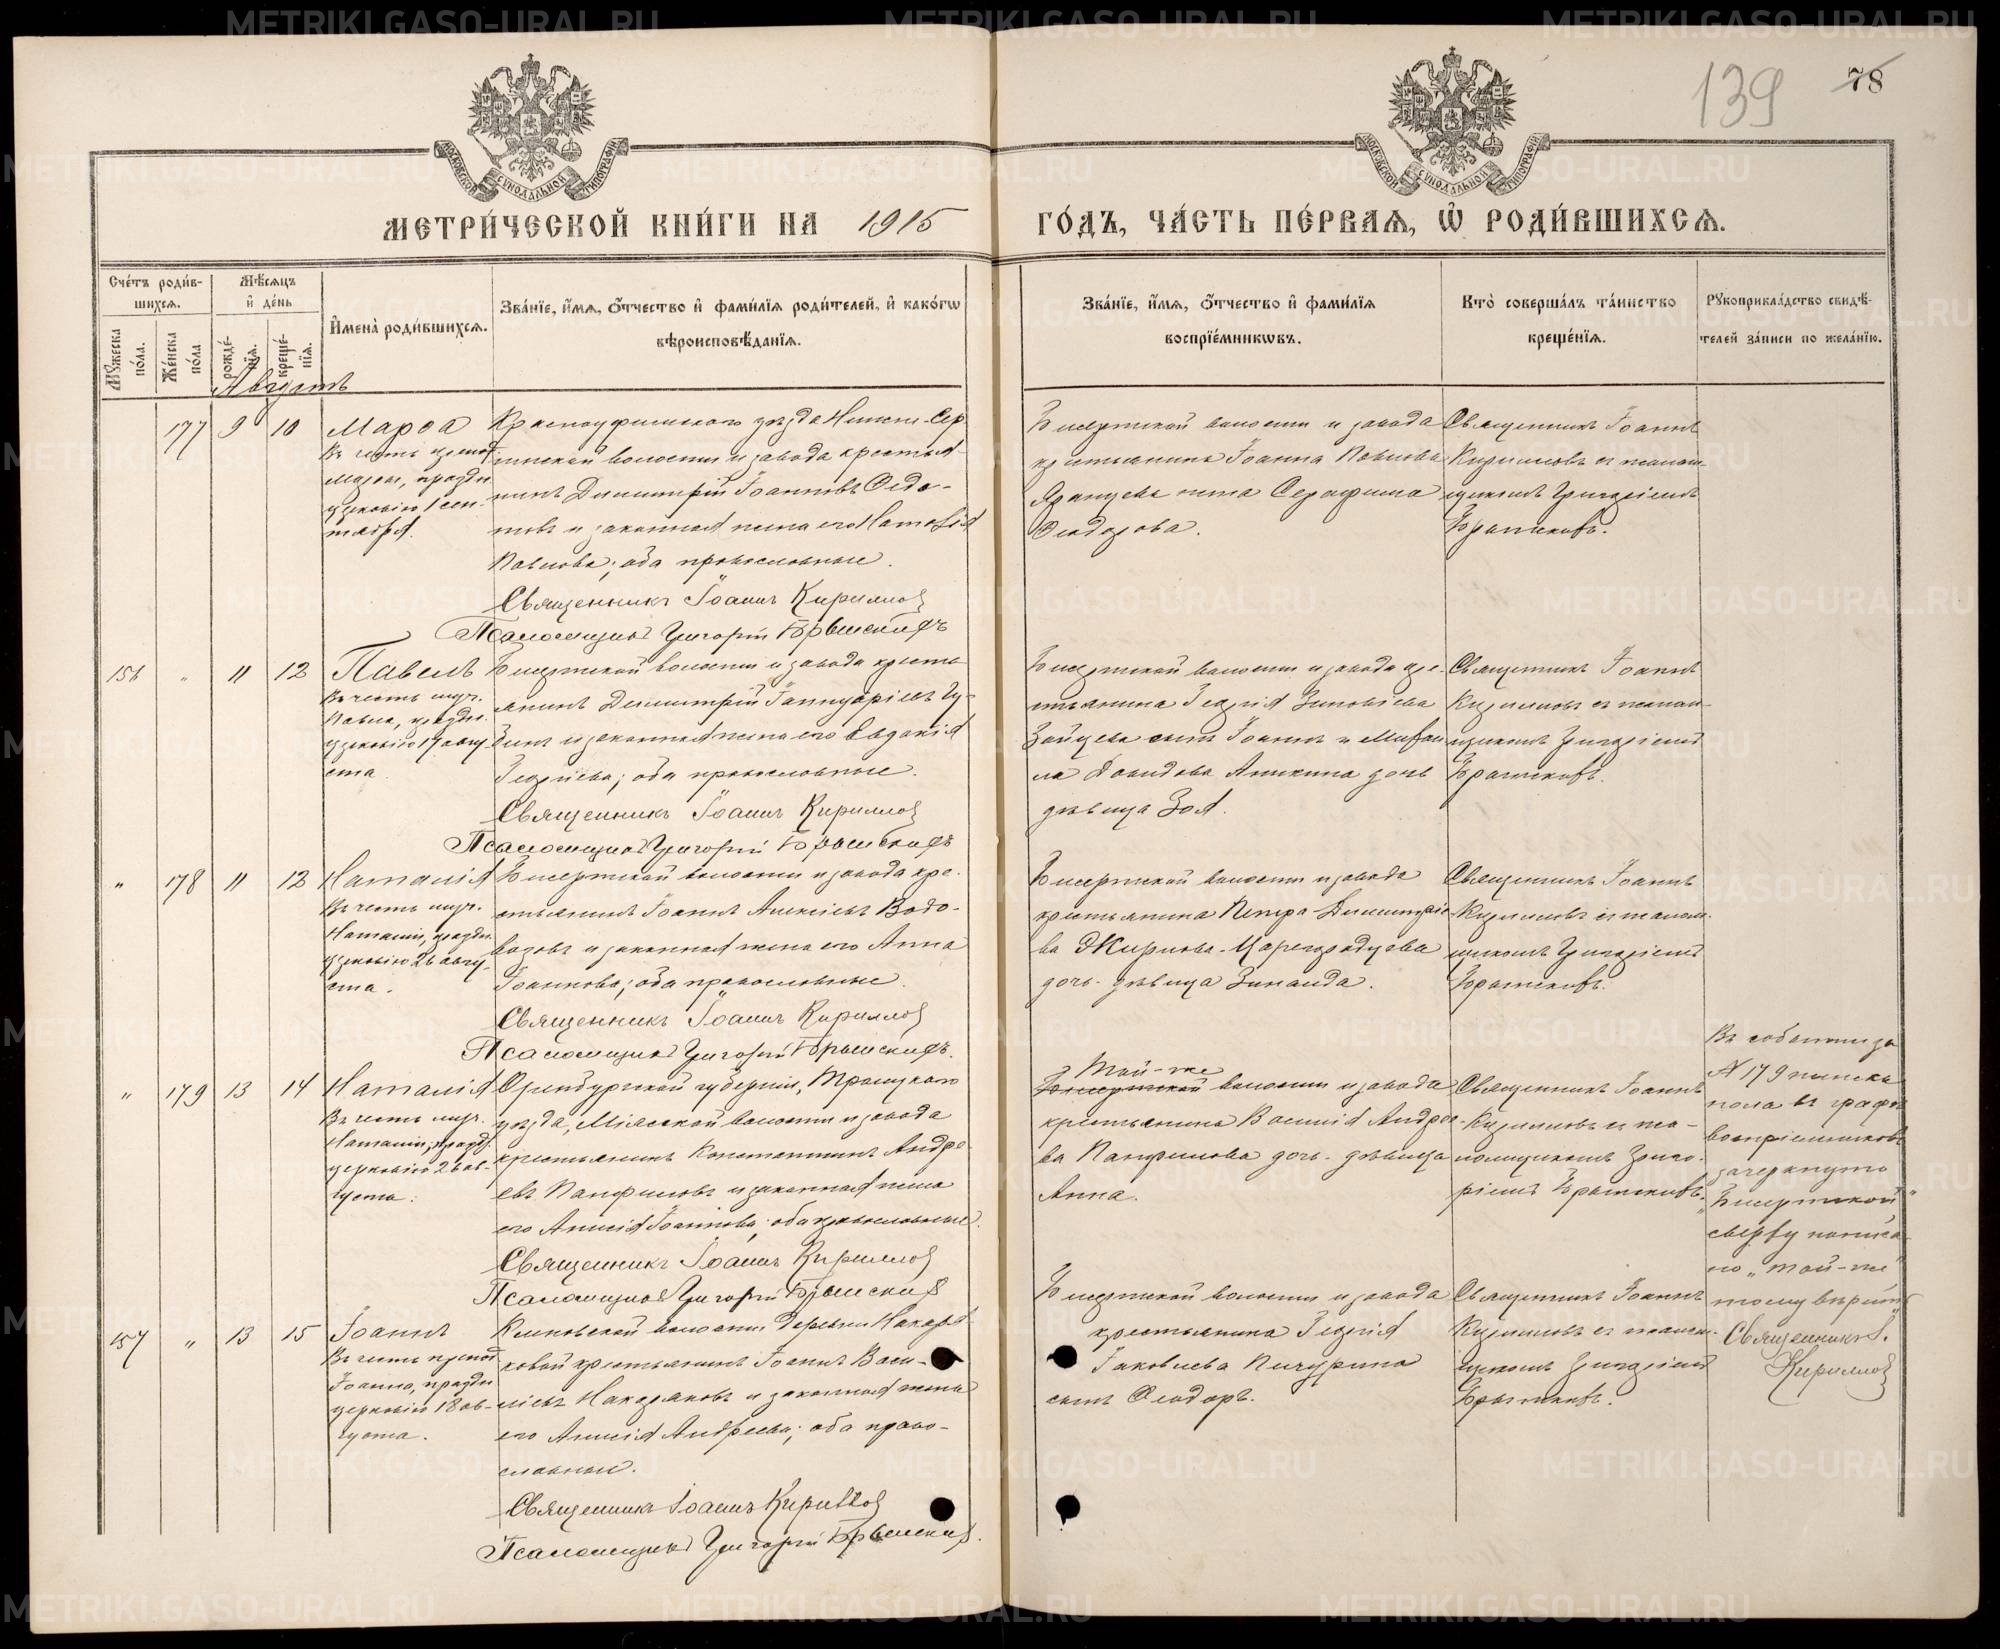 139
78
МОСКОВСКОЙ СѴНОДАЛЬНОЙ ТИПОГРАФІИ
МОСКОВСКОЙ СѴНОДАЛЬНОЙ ТИПОГРАФІИ
МЕТРИ́ЧЕСКОЙ КНИ́ГИ НА 1915
ГО́ДЪ, ЧА́СТЬ ПЕ́РВАѦ, Ѡ҆ РОДИ́ВШИХСѦ.
Сче́тъ роди́в-
шихсѧ.
Мꙋ́жеска по́ла.
Же́нска по́ла
Мѣ́сѧцъ и҆ де́нь
рожде́-нїѧ.
креще́-нїѧ.
И҆мена̀ роди́вшихсѧ.
Зва́нїе, и҆́мѧ, ѻ҆́тчество и҆ фами́лїѧ роди́телей, и҆ како́гѡ
вѣроисповѣ́данїѧ.
Зва́нїе, и҆́мѧ, ѻ҆́тчество и҆ фами́лїѧ
воспрїе́мникѡвъ.
Кто̀ соверша́лъ та́инство
креще́нїѧ.
Рꙋкоприкла́дство свидѣ́-
телей за́писи по жела́нїю.
Августъ
177 9 10
Марѳа
Въ честь препод.
Марѳы, праздн.
церковію 1 сен-
тября.
Красноуфимскаго уѣзда Нижне-Сер-
гинской волости и завода крестья-
нинъ Димитрій Іоанновъ Ѳедо-
товъ и законная жена его Наталія
Павлова; оба православные.
Священникъ Іоаннъ Кирилловъ
Псаломщикъ Григорій
Бисертской волости и завода
крестьянина Іоанна Павлова
жена Серафима
Ѳеодорова.
Священникъ Іоаннъ
Кирилловъ съ псалом-
щикомъ Григоріемъ
156 " 11 12
Павелъ
Въ честь муч.
Павла, праздн.
церковію 17 авгу-
ста
Бисертской волости и завода кресть-
янинъ Димитрій Іаннуаріевъ
и законная жена его Евдокія
Георгіева; оба православные.
Священникъ Іоаннъ Кирилловъ
Псаломщикъ Григорій
Бисертской волости и завода кре-
стьянина Георгія Зиновіева
Зайцева сынъ Іоаннъ и Михаи-
ла Давидова Аникина дочь
дѣвица Зоя.
Священникъ Іоаннъ
Кирилловъ съ псалом-
щикомъ Григоріемъ
" 178 11 12
Наталія
Въ честь муч.
Наталіи, праздн.
церковію 26 авгу-
ста.
Бисертской волости и завода кре-
стьянинъ Іоаннъ Алексіевъ Водо-
возовъ и законная жена его Анна
Іоаннова; оба православные.
Священникъ Іоаннъ Кирилловъ
Псаломщикъ Григорій
Бисертской волости и завода
крестьянина Петра Димитріе-
ва Жирнова-Царегородцева
дочь дѣвица Зинаида.
Священникъ Іоаннъ
Кирилловъ съ псалом-
щикомъ Григоріемъ
" 179 13 14
Наталія
Въ честь муч.
Наталіи, празд.
церковію 26 ав-
густа.
Оренбургской губерніи, Троицкаго
уѣзда, Міясской волости и завода
крестьянинъ Константинъ Андре-
евъ Панфиловъ и законная жена
его Анисія Іоаннова; оба православные.
Священникъ Іоаннъ Кирилловъ
Псаломщикъ Григорій
Той-же
Бисертской волости и завода
крестьянина Василія Андрее-
ва Панфилова дочь дѣвица
Анна.
Священникъ Іоаннъ
Кирилловъ съ пса-
ломщикомъ Григо-
ріемъ
№ 179 женска
пола въ графѣ
воспріемниковъ
зачеркнуто
"Бисертской"
сверху написа-
но "той-же"
тому вѣрить
Священникъ І.
Кирилловъ
157 " 13 15
Іоаннъ
Въ честь препод.
Іоанна, праздн.
церковію 18 ав-
густа.
Кленовской волости деревни Накаря-
ковой крестьянинъ Іоаннъ Васи-
ліевъ Накаряковъ и законная жена
его Анисія Андреева; оба право-
славные.
Священникъ Іоаннъ Кирилловъ
Псаломщикъ Григорій
Бисертской волости и завода
крестьянина Георгія
Іаковлева Пичурина
сынъ Ѳеодоръ.
Священникъ Іоаннъ
Кирилловъ съ псалом-
щикомъ Григоріемъ
METRIKI.GASO-URAL.RU